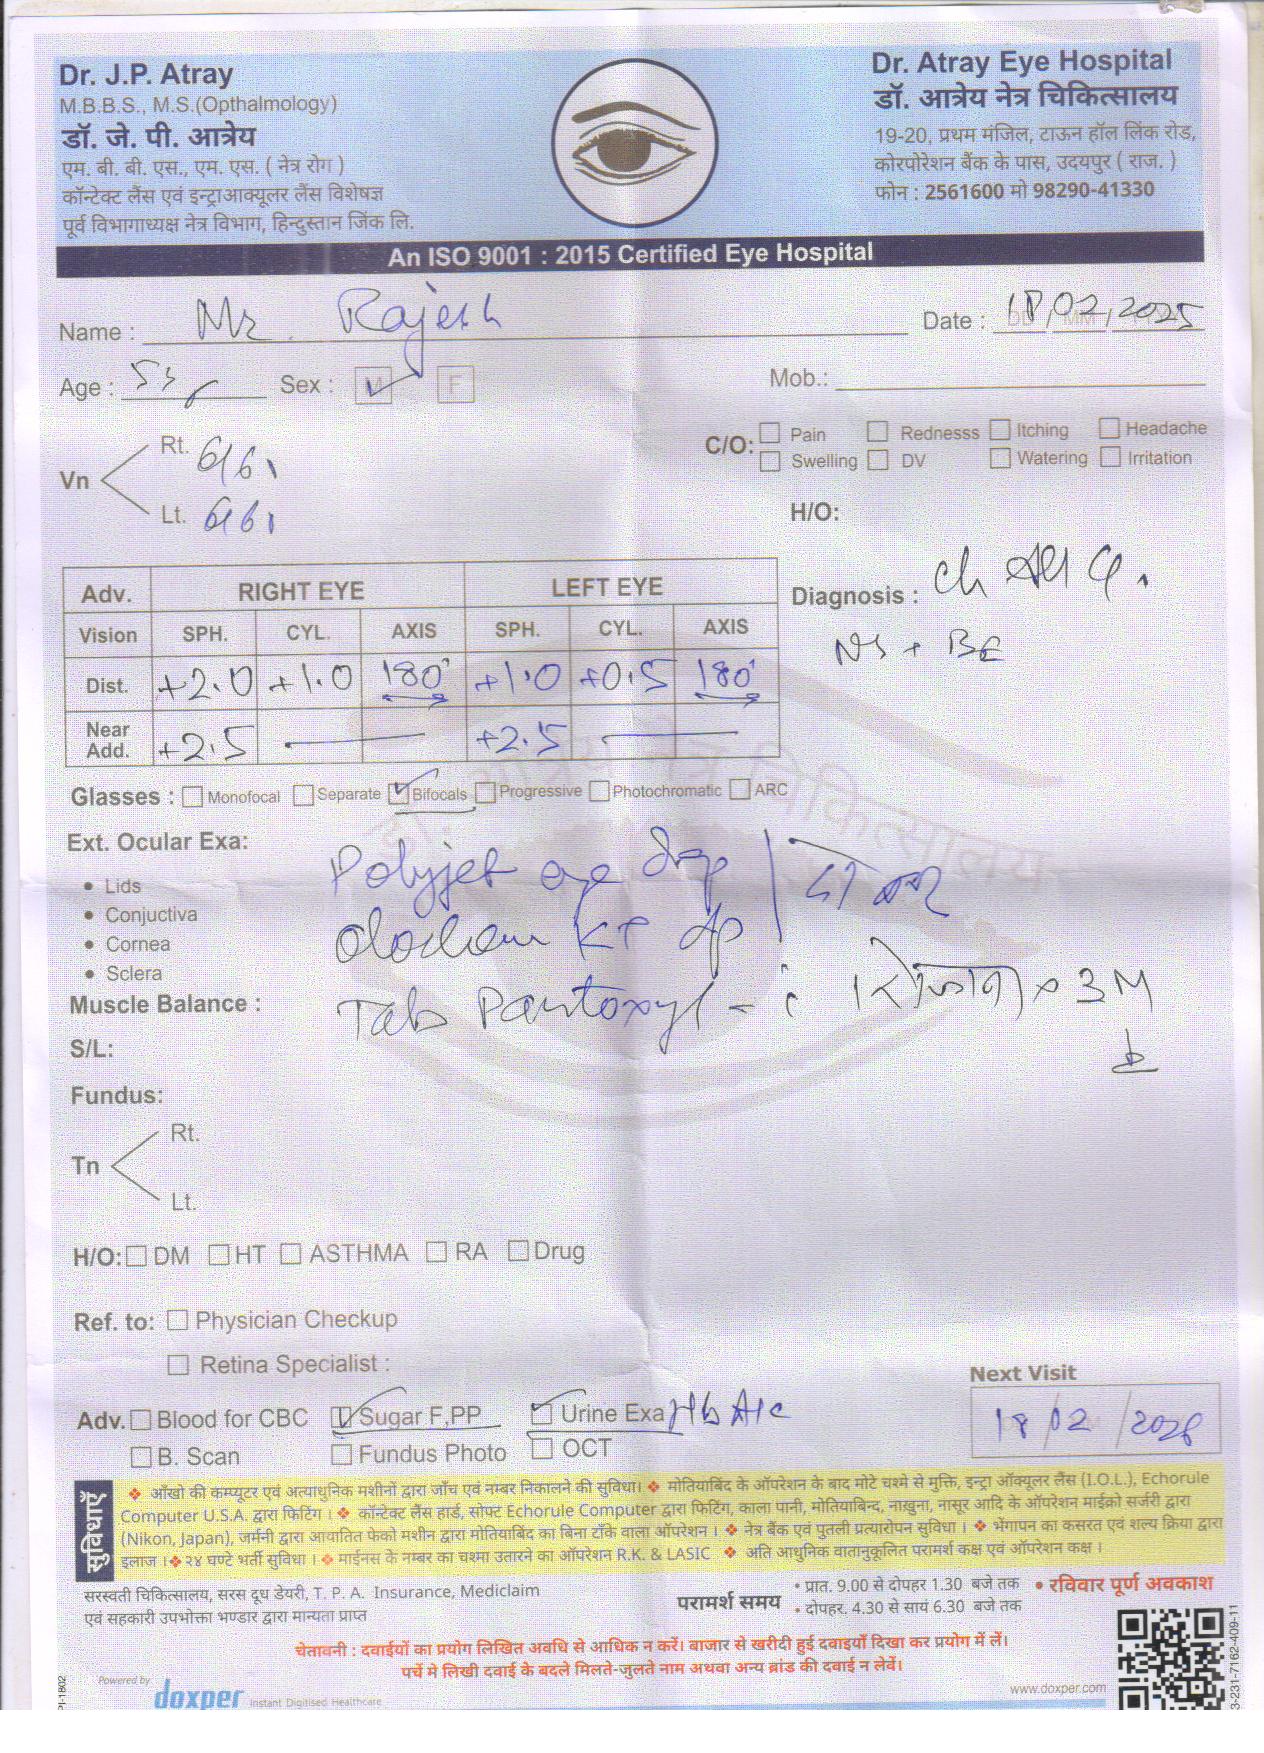 Dr. J.P. Atray
M.B.B.S., M.S.(Opthalmology)
डॉ. जे. पी. आत्रेय
एम. बी. बी. एस., एम. एस. ( नेत्र रोग )
कॉन्टेक्ट लैंस एवं इन्ट्राआक्यूलर लैंस विशेषज्ञ
पूर्व विभागाध्यक्ष नेत्र विभाग, हिन्दुस्तान जिंक लि.
Dr. Atray Eye Hospital
डॉ. आत्रेय नेत्र चिकित्सालय
19-20, प्रथम मंजिल, टाऊन हॉल लिंक रोड,
कोरपोरेशन बैंक के पास, उदयपुर ( राज. )
फोन : 2561600 मो 98290-41330
An ISO 9001 : 2015 Certified Eye Hospital
Name : Mr. Rajesh Date : 18/02/2025
Age : 53 Sex : M F Mob.:
Vn Rt. 6/61
Lt. 6/61
C/O: Pain Rednesss Itching Headache
Swelling DV Watering Irritation
H/O:
Diagnosis : ch
NS + BE
Adv. RIGHT EYE LEFT EYE
Vision SPH. CYL. AXIS SPH. CYL. AXIS
Dist. +2.0 +1.0 180° +1.0 +0.5 180°
Near Add. +2.5 +2.5
Glasses : Monofocal Separate Bifocals Progressive Photochromatic ARC
Ext. Ocular Exa:
Polyjet eye drop
• Lids
• Conjuctiva
• Cornea
• Sclera
KT
Muscle Balance :
Tab Pantoxyl - 1 रोजाना x 3M
S/L:
Fundus:
Tn Rt.
Lt.
H/O: DM HT ASTHMA RA Drug
Ref. to: Physician Checkup
Retina Specialist :
Next Visit
18/02/2026
Adv. Blood for CBC Sugar F,PP Urine Exa Hb A1c
B. Scan Fundus Photo OCT
सुविधाएँ
❖ आँखो की कम्प्यूटर एवं अत्याधुनिक मशीनों द्वारा जाँच एवं नम्बर निकालने की सुविधा। ❖ मोतियाबिंद के ऑपरेशन के बाद मोटे चश्मे से मुक्ति, इन्ट्रा ऑक्यूलर लैंस (I.O.L.), Echorule
Computer U.S.A. द्वारा फिटिंग । ❖ कॉन्टेक्ट लैंस हार्ड, सोफ्ट Echorule Computer द्वारा फिटिंग, काला पानी, मोतियाबिन्द, नाखुना, नासूर आदि के ऑपरेशन माईक्रो सर्जरी द्वारा
(Nikon, Japan), जर्मनी द्वारा आयातित फेको मशीन द्वारा मोतियाबिंद का बिना टाँके वाला ऑपरेशन । ❖ नेत्र बैंक एवं पुतली प्रत्यारोपन सुविधा । ❖ भेंगापन का कसरत एवं शल्य क्रिया द्वारा
इलाज ।❖ २४ घण्टे भर्ती सुविधा । ❖ माईनस के नम्बर का चश्मा उतारने का ऑपरेशन R.K. & LASIC ❖ अति आधुनिक वातानुकूलित परामर्श कक्ष एवं ऑपरेशन कक्ष ।
सरस्वती चिकित्सालय, सरस दूध डेयरी, T. P. A. Insurance, Mediclaim
एवं सहकारी उपभोक्ता भण्डार द्वारा मान्यता प्राप्त
परामर्श समय • प्रात. 9.00 से दोपहर 1.30 बजे तक
• दोपहर. 4.30 से सायं 6.30 बजे तक
• रविवार पूर्ण अवकाश
चेतावनी : दवाईयों का प्रयोग लिखित अवधि से आधिक न करें। बाजार से खरीदी हुई दवाइयाँ दिखा कर प्रयोग में लें।
पर्चे मे लिखी दवाई के बदले मिलते-जुलते नाम अथवा अन्य ब्रांड की दवाई न लेवें।
Powered by doxper Instant Digitised Healthcare
www.doxper.com
PI-1802
3-231-7162-409-11